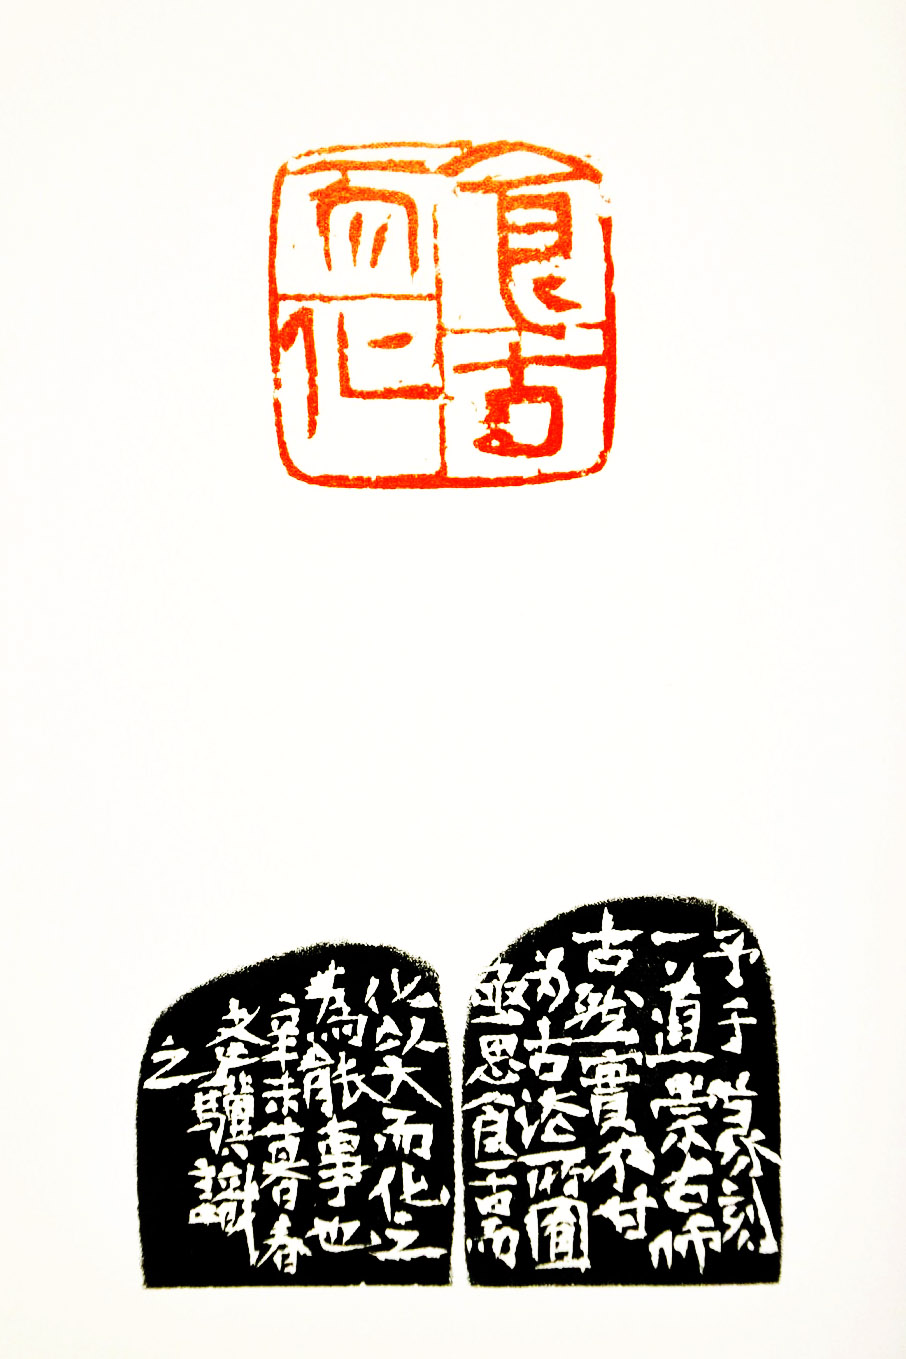 食古
而化
予于篆刻
一道崇古師
古然實不甘
为古法所囿
亟思食古而
化以大而化之
為能事也
辛未暮春
驥識
之